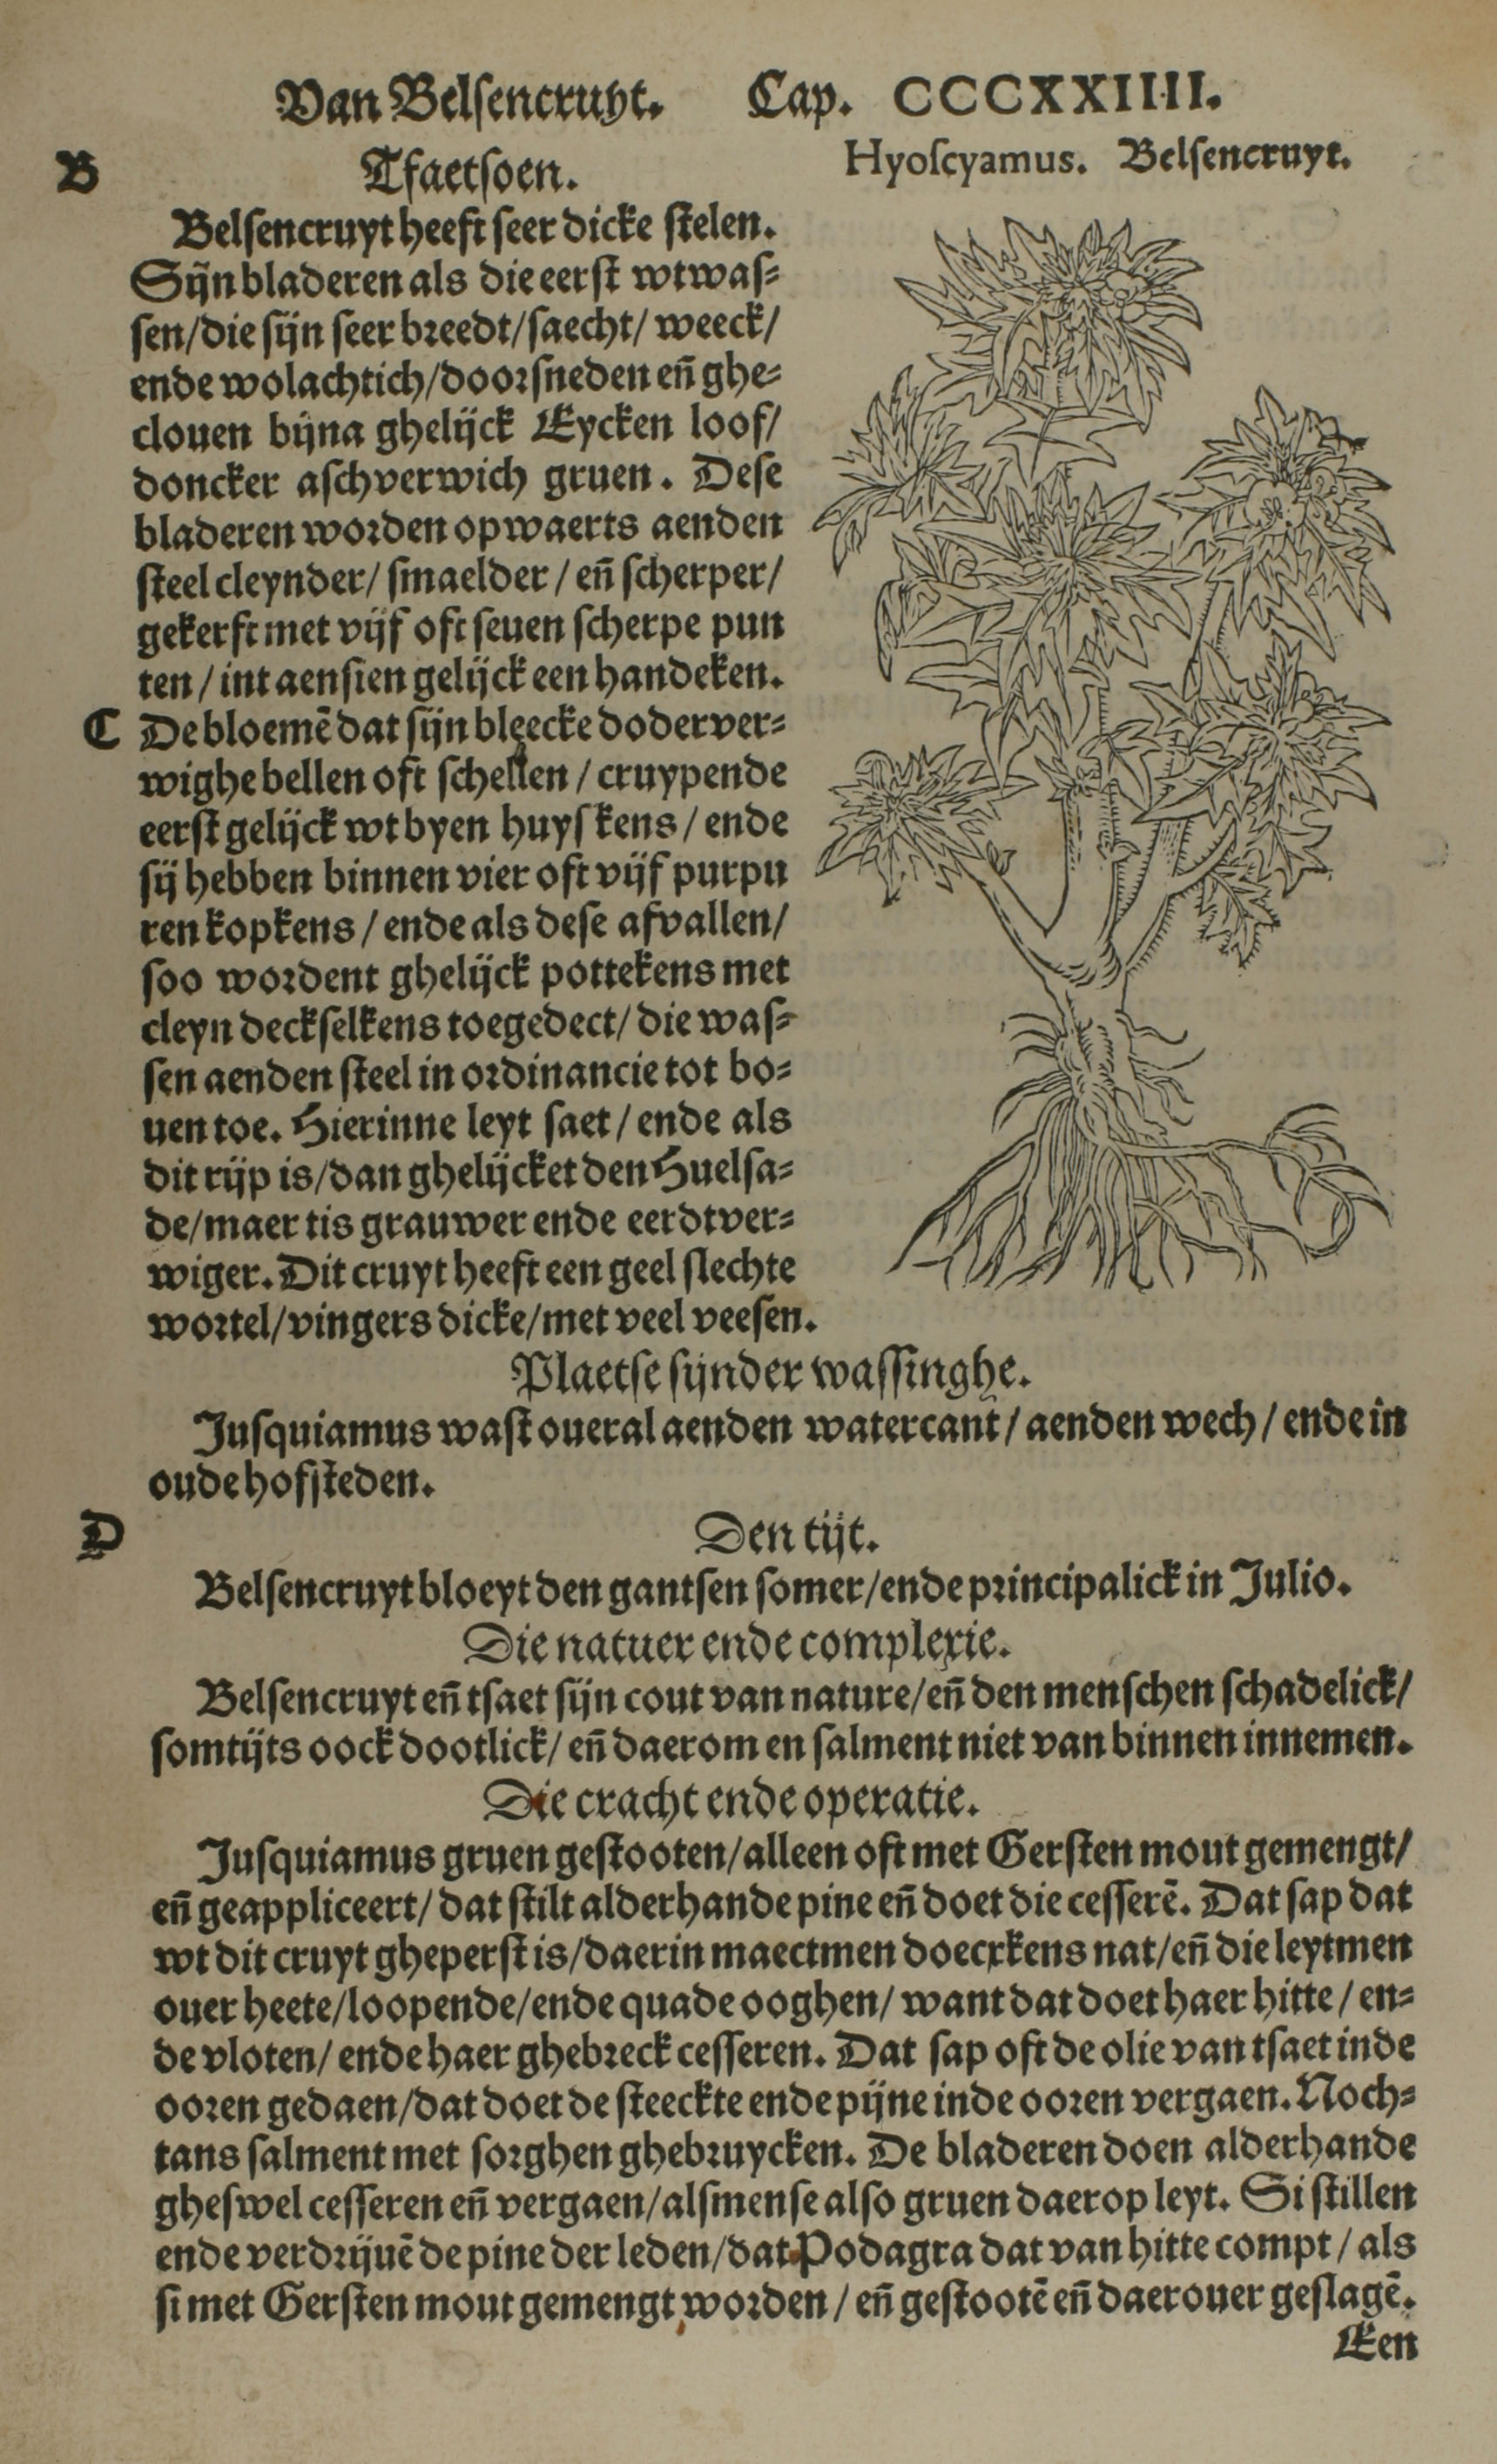 Van Belſencruyt. Cap. CCCXXIIII.
Hyoſcyamus. Belſencruyt.
B
Tfaetſoen.
Belſencruyt heeft ſeer dicke ſtelen.
Sijn bladeren als die eerſt wtwaſ⸗
ſen/die ſijn ſeer breedt/ſaecht/ weeck/
ende wolachtich/doorſneden en̄ ghe⸗
clouen bijna ghelijck Eycken loof/
doncker aſchverwich gruen. Deſe
bladeren worden opwaerts aenden
ſteel cleynder/ ſmaelder / en̄ ſcherper/
gekerft met vijf oft ſeuen ſcherpe pun
ten / int aenſien gelijck een handeken.
C De bloemē dat ſijn bleecke doderver⸗
wighe bellen oft ſchellen / cruypende
eerſt gelijck wt byen huyſkens / ende
ſij hebben binnen vier oft vijf purpu
ren kopkens / ende als deſe afvallen/
ſoo wordent ghelijck pottekens met
cleyn deckſelkens toegedect/ die waſ⸗
ſen aenden ſteel in ordinancie tot bo⸗
uen toe. Hierinne leyt ſaet / ende als
dit rijp is/dan ghelijcket den Huelſa⸗
de/maer tis grauwer ende eerdtver⸗
wiger. Dit cruyt heeft een geel ſlechte
wortel/vingers dicke/met veel veeſen.
Plaetſe ſijnder waſſinghe.
Juſquiamus waſt oueral aenden watercant / aenden wech / ende in
oude hofſteden.
D
Den tijt.
Belſencruyt bloeyt den gantſen ſomer/ende principalick in Julio.
Die natuer ende complexie.
Belſencruyt en̄ tſaet ſijn cout van nature/en̄ den menſchen ſchadelick/
ſomtijts oock dootlick/ en̄ daerom en ſalment niet van binnen innemen.
Die cracht ende operatie.
Juſquiamus gruen geſtooten/alleen oft met Gerſten mout gemengt/
en̄ geappliceert/ dat ſtilt alderhande pine en̄ doet die ceſſerē. Dat ſap dat
wt dit cruyt gheperſt is/daerin maectmen doecxkens nat/en̄ die leytmen
ouer heete/loopende/ende quade ooghen/ want dat doet haer hitte / en⸗
de vloten/ ende haer ghebreck ceſſeren. Dat ſap oft de olie van tſaet inde
ooren gedaen/dat doet de ſteeckte ende pijne inde ooren vergaen. Noch⸗
tans ſalment met ſorghen ghebruycken. De bladeren doen alderhande
gheſwel ceſſeren en̄ vergaen/alſmenſe alſo gruen daerop leyt. Si ſtillen
ende verdrijuē de pine der leden/dat Podagra dat van hitte compt / als
ſi met Gerſten mout gemengt worden / en̄ geſtootē en̄ daerouer geſlagē.
Een